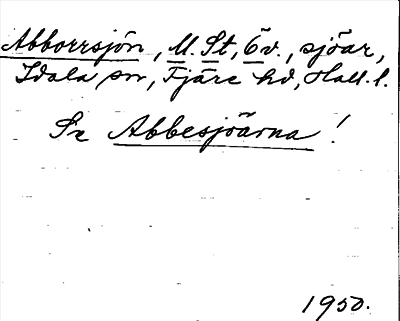 Abborrsjön, M. St, Öv., sjöar,
Idala sn, Fjäre hd, Hall. l.
Se Abbesjöarna!
1950.